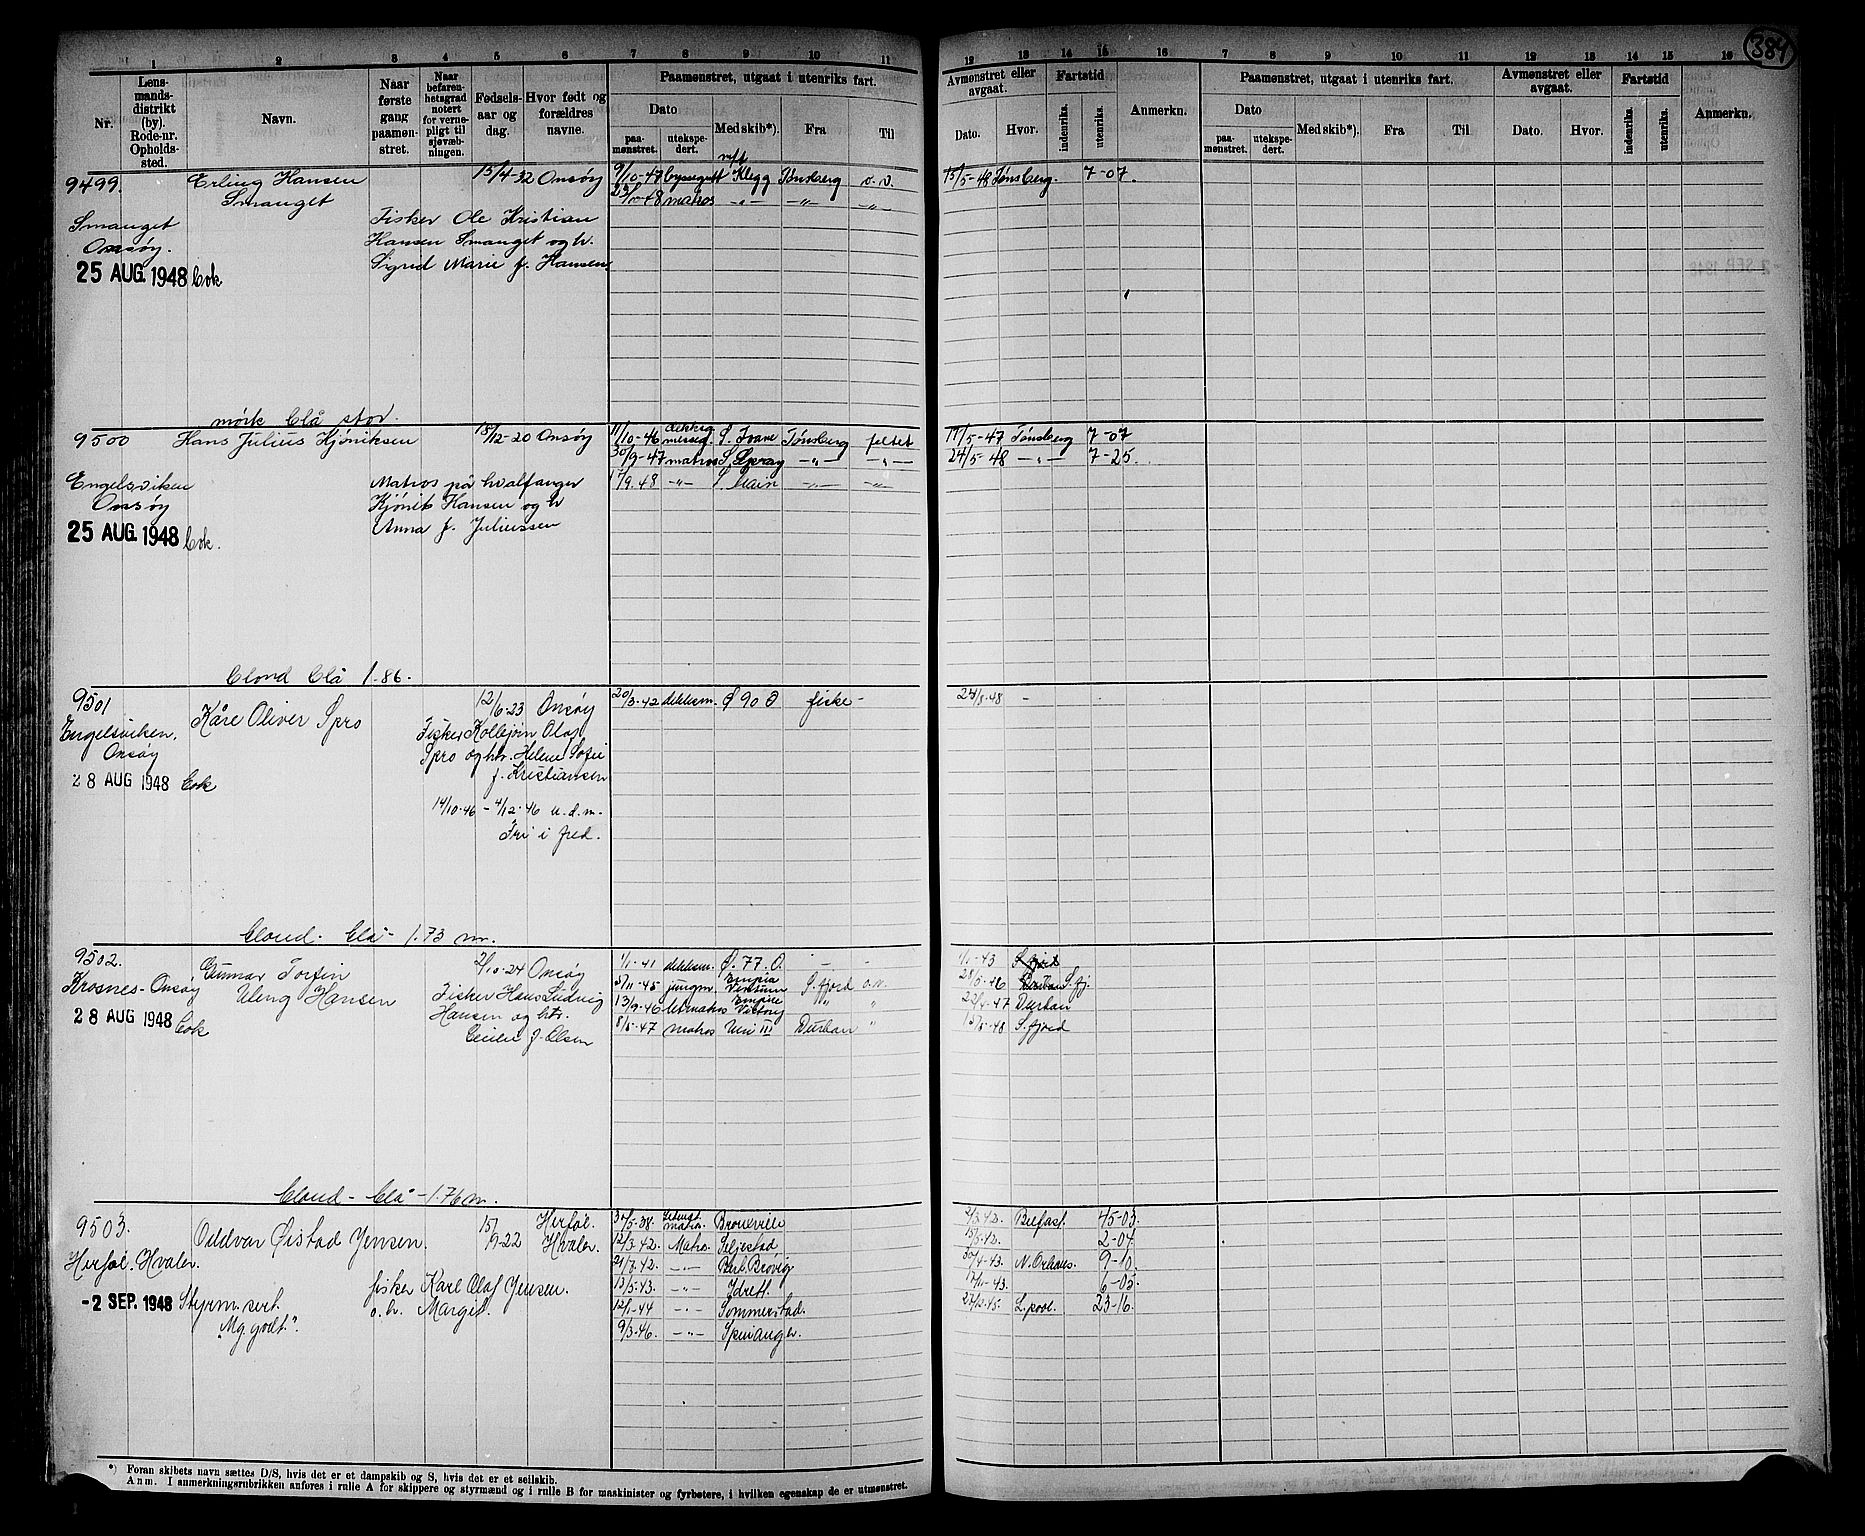 384
1 2 3 4 5 6 7 8 9 10 11
12 13 14 15 16 7 8 9 10 11 12 13 14 15 16
Nr.
Lensmandsdistrikt (by). Rode-nr. Opholdssted.
Navn.
Naar første gang paamønstret.
Naar befarenhetsgrad notert for vernepligt til sjøvæbningen.
Fødselsaar og dag.
Hvor født og forældres navne.
Paamønstret, utgaat i utenriks fart.
Dato
paamønstret.
utekspedert.
Med skib*).
Fra
Til
Avmønstret eller avgaat.
Dato.
Hvor.
Fartstid
indenriks.
utenriks.
Anmerkn.
Paamønstret, utgaat i utenriks fart.
Dato
paamønstret.
utekspedert.
Med skib*).
Fra
Til
Avmønstret eller avgaat.
Dato.
Hvor.
Fartstid
indenriks.
utenriks.
Anmerkn.
9499. Erling Hansen 15/4-32 Onsøy 9/10-47 byssegutt m/t Klegg Tønsberg v.v. 15/5-48 Tønsberg. 7-07.
Smauget 48 matros -"- -"- -"-
Smauget Fisker Ole Kristian
Onsøy. Hansen Smauget og h.
Sigrid Marie f. Hansen.
25 AUG. 1948 Cok
mørk blå stor.
9500 Hans Julius Kjøniksen 18/12-20 Onsøy 11/10-46 Tønsberg feltet 17/5-47 Tønsberg 7-07
30/9-47 matros S. Spray -"- -"- 24/5-48 -"- 7-25.
Engelsviken Matros på hvalfanger 17/9.48 -"- -"- -"-
Onsøy Kjønik Hansen og h
Anna f. Juliussen
25 AUG. 1948 Cok.
blond blå 1.86.
9501 Kåre Oliver Spro 12/6-23 Onsøy 20/3-42 dekksm. Ø 90 O fiske - 24/8-48 -
Engelsviken, Fisker Kolbjørn Olaf
Onsøy Spro og h. Helene Sofie
f. Kristiansen
28 AUG 1948 Cok
14/10-46 - 4/12-46 u.d.m.
Fri i fred.
blond - blå - 1.73 m.
9502. Gunnar Torfin 2/10-24 Onsøy 1/1-41 dekksm. Ø. 77. O. - - 1/11-43
Krosnes-Onsøy Uleng Hansen Fisker Hans Ludvig 45 jungm. Empire S. fjord o.v. 28/5-46 S. fj.
Hansen og h. 13/9-46 letmatros Empire Victory "" " 22/4-47 Durban
28 AUG 1948 Cok f. Olsen 8/5-47 matros III Durban " 48 S. fjord
blond - blå - 1.76 m.
9503. Oddvar Øistad Jensen. 22 Herføl. Hvaler. 38. Brouxville 42. Belfast. 45-03.
Herføl. Hvaler. 12/3-42. Matro. Seljestad 42. 2-04
fisker Karl Olaf Jensen. 42. -"- Brøvig 43. N. Orleans. 9-10.
-2 SEP. 1948 Styrm. sert. o. h. Margit. 13/5-43. -"- Idrett. 43. 6-05
"Mg. godt". 12/1-44 -"- Sommerstad. 45. L.pool. 23-16.
9/3-46. -"- Spinanger.
*) Foran skibets navn sættes D/S, hvis det er et dampskib og S, hvis det er et seilskib.
Anm. I anmerkningsrubrikken anføres i rulle A for skippere og styrmænd og i rulle B for maskinister og fyrbøtere, i hvilken egenskap de er utmønstret.